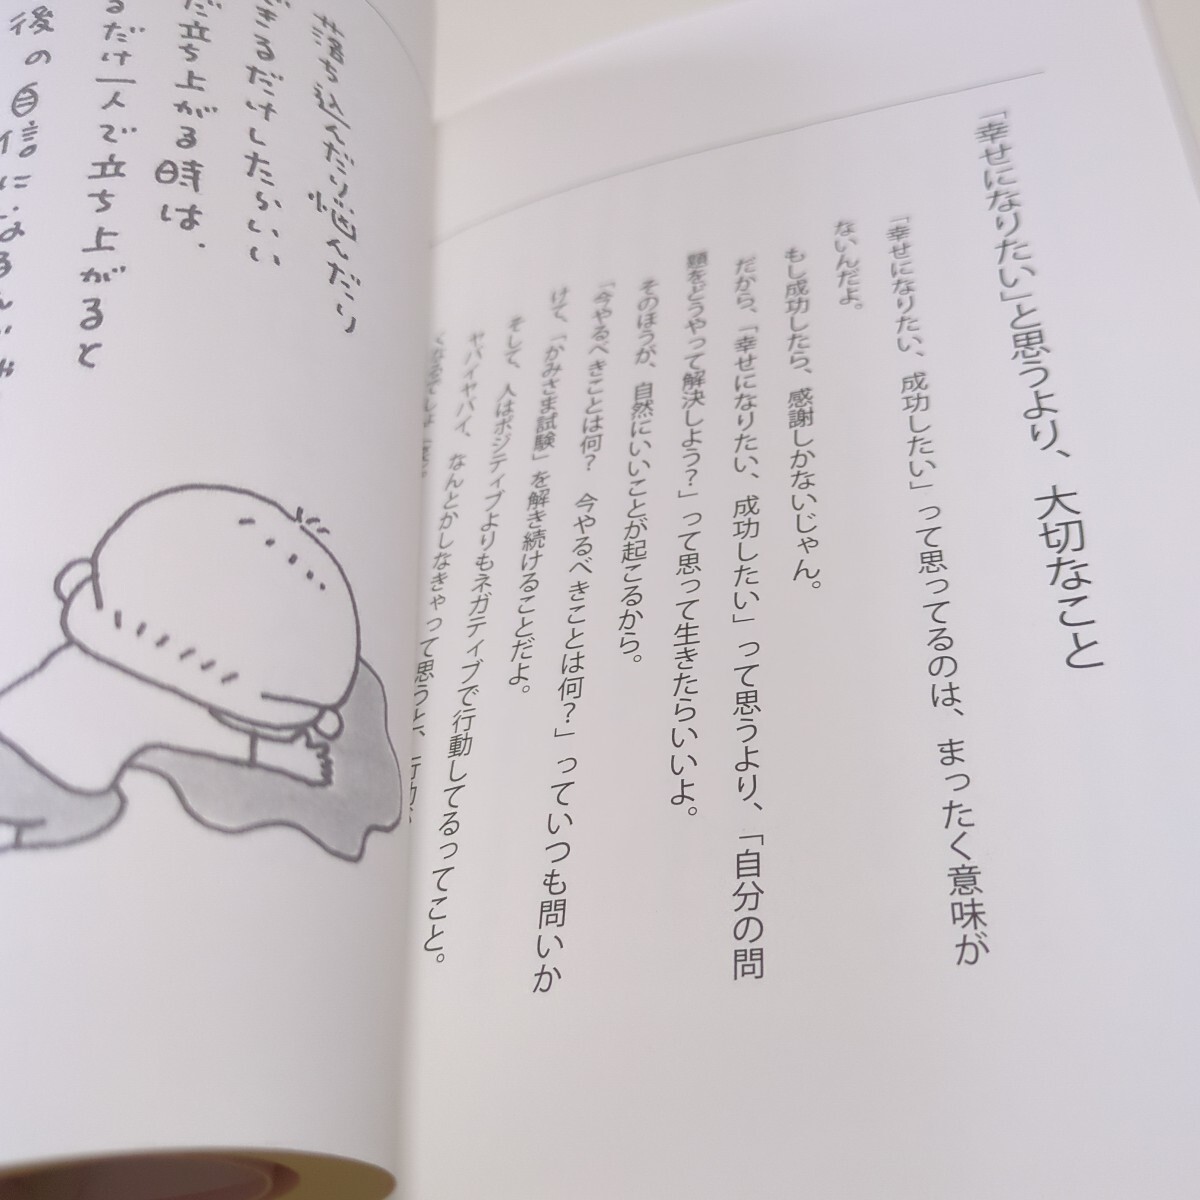 「幸せになりたい」と思うより、大切なこと
「幸せになりたい、成功したい」って思ってるのは、まったく意味が
ないんだよ。
もし成功したら、感謝しかないじゃん。
だから、「幸せになりたい、成功したい」って思うより、「自分の問
題をどうやって解決しよう?」って思って生きたらいいよ。
そのほうが、自然にいいことが起こるから。
「今やるべきことは何? 今やるべきことは何?」っていつも問いか
けて、「かみさま試験」を解き続けることだよ。
そして、人はポジティブよりもネガティブで行動してるってこと。
ヤバイヤバイ、なんとかしなきゃって思うと、行動
くなるでしょ
落ち込んだり悩んだり
きるだけしたらいい
だ立ち上がる時は、
るだけ一人で立ち上がると
後の自信になる